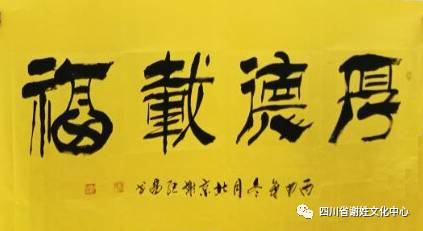 厚德載福
丙申年冬月北京謝
四川省谢姓文化中心